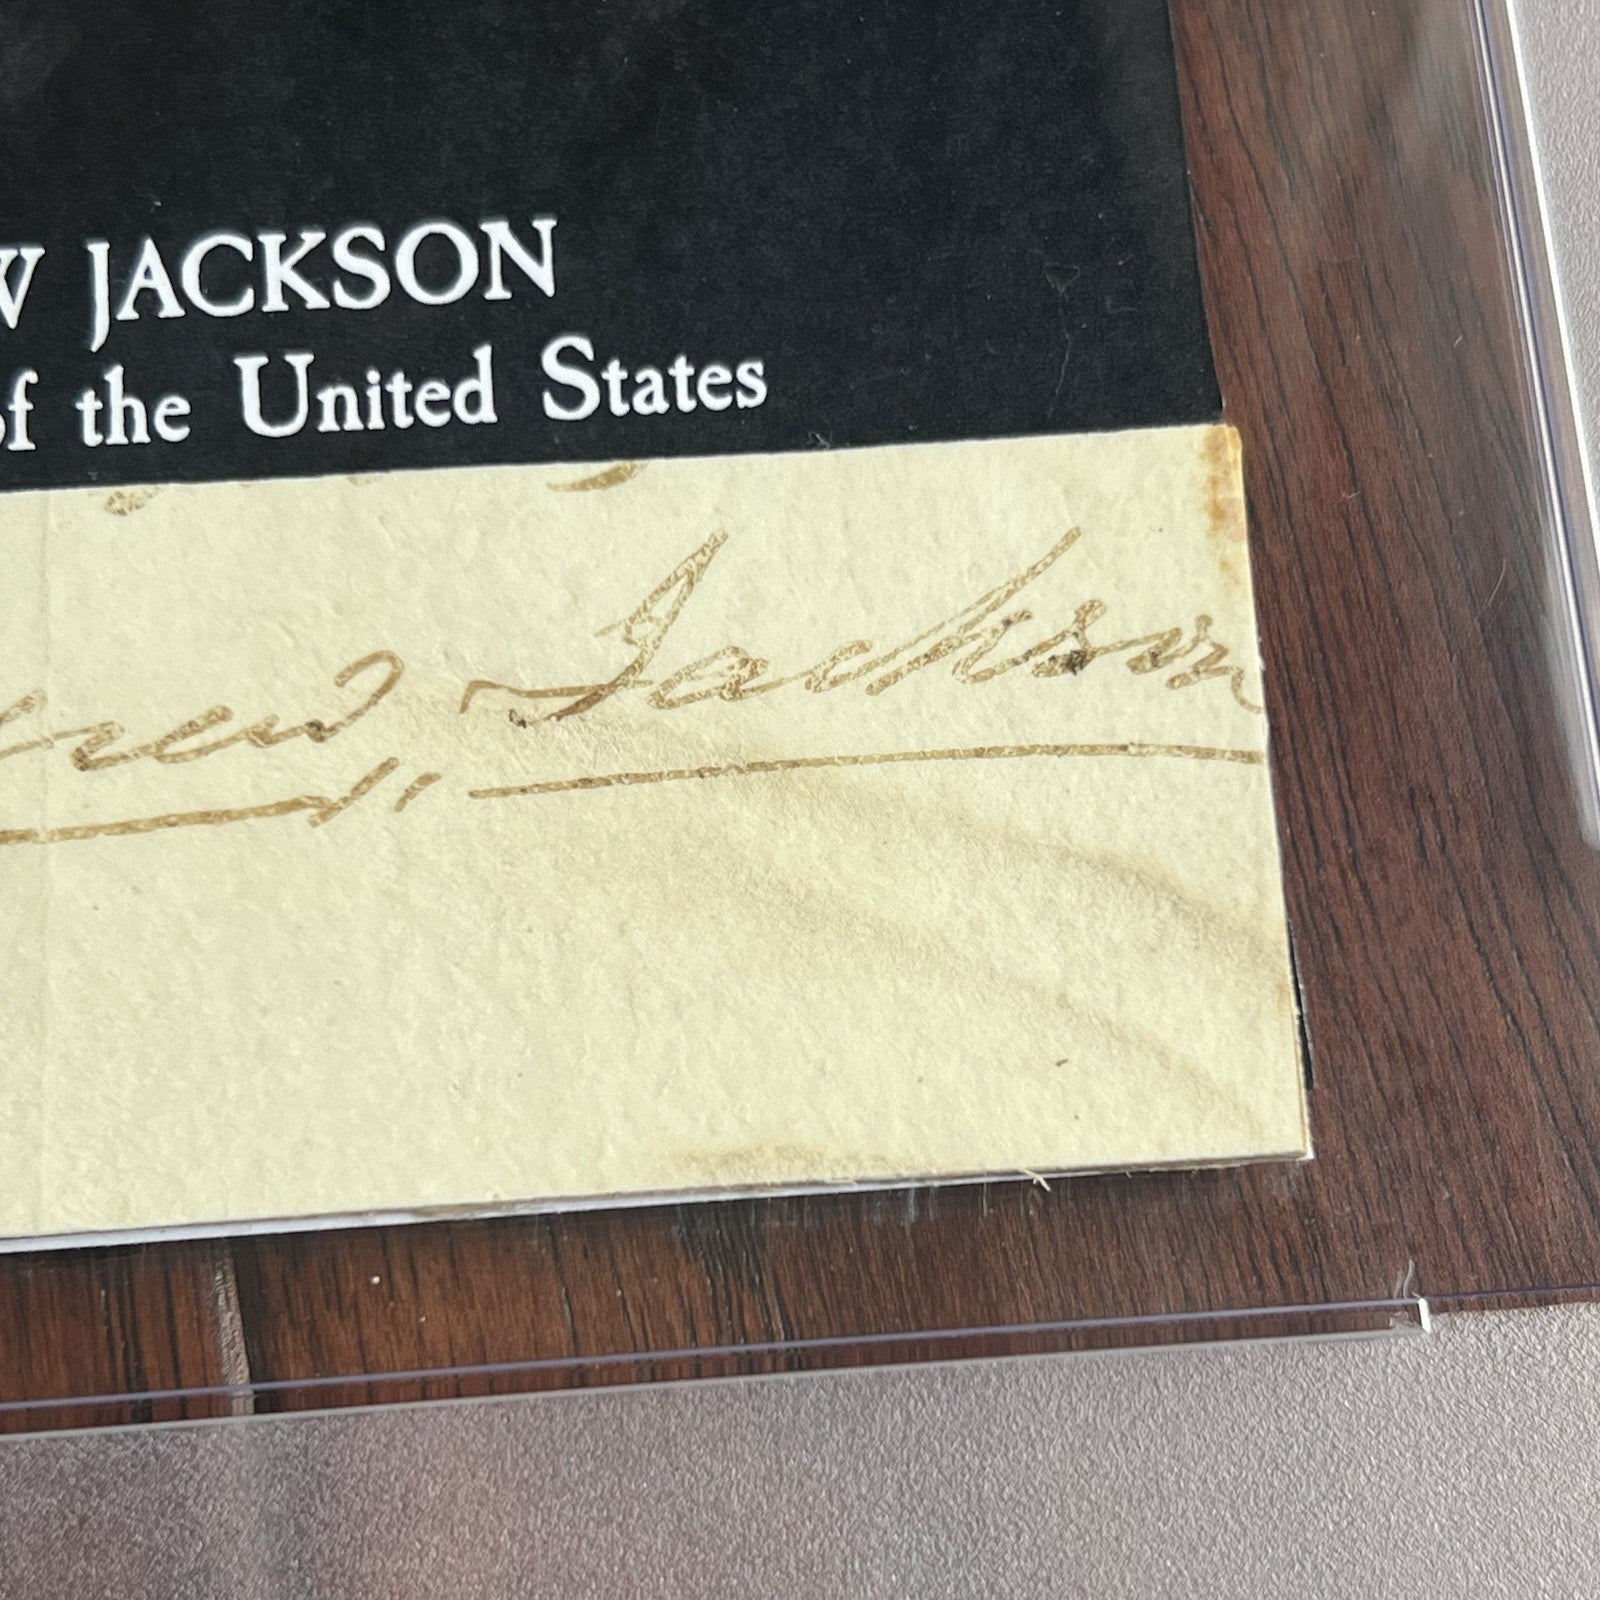 W JACKSON
of the United States
rew Jackson